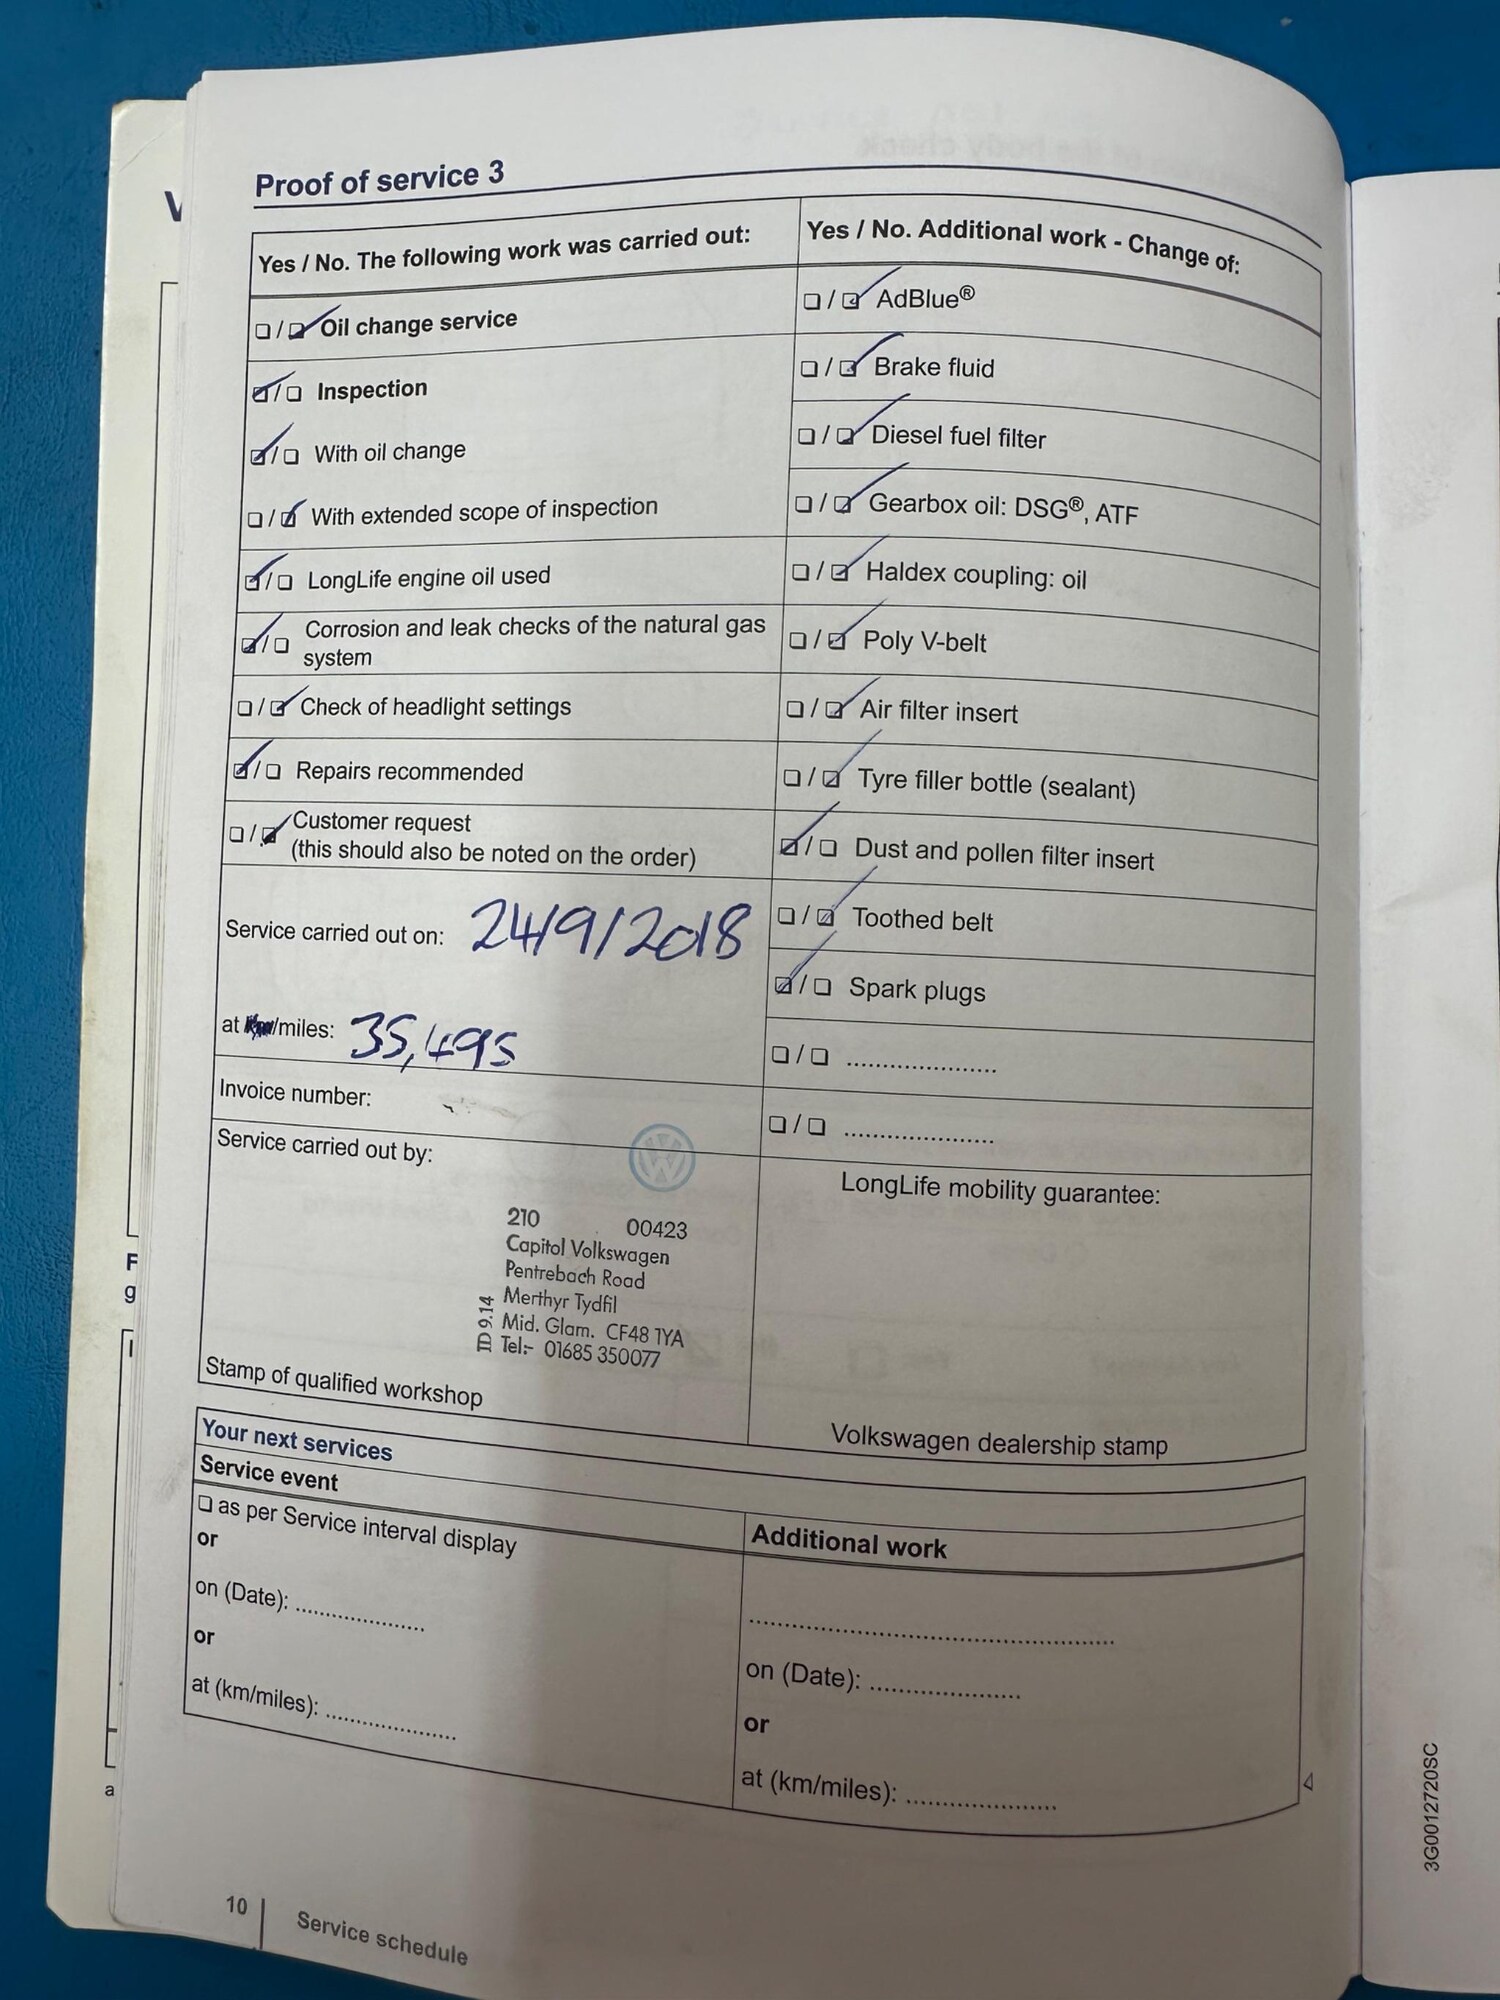 V
Proof of service 3
Yes / No. The following work was carried out:
☐ / ☑ Oil change service
☑ / ☐ Inspection
☑ / ☐ With oil change
☐ / ☑ With extended scope of inspection
☑ / ☐ LongLife engine oil used
☑ / ☐ Corrosion and leak checks of the natural gas
system
☐ / ☑ Check of headlight settings
☑ / ☐ Repairs recommended
☐ / ☑ Customer request
(this should also be noted on the order)
Service carried out on: 24/9/2018
at km/miles: 35,495
Invoice number:
Service carried out by:
210 00423
Capitol Volkswagen
Pentrebach Road
Merthyr Tydfil
Mid. Glam. CF48 1YA
Tel:- 01685 350077
TD 9.14
Stamp of qualified workshop
Yes / No. Additional work - Change of:
☐ / ☑ AdBlue®
☐ / ☑ Brake fluid
☐ / ☑ Diesel fuel filter
☐ / ☑ Gearbox oil: DSG®, ATF
☐ / ☑ Haldex coupling: oil
☐ / ☑ Poly V-belt
☐ / ☑ Air filter insert
☐ / ☑ Tyre filler bottle (sealant)
☑ / ☐ Dust and pollen filter insert
☐ / ☑ Toothed belt
☑ / ☐ Spark plugs
☐ / ☐ ......................
☐ / ☐ ......................
LongLife mobility guarantee:
Volkswagen dealership stamp
Your next services
Service event
☐ as per Service interval display
or
on (Date): ...................
or
at (km/miles): ...................
Additional work
......................................................
on (Date): ......................
or
at (km/miles): ......................
10 | Service schedule
3G0012720SC
F
g
a